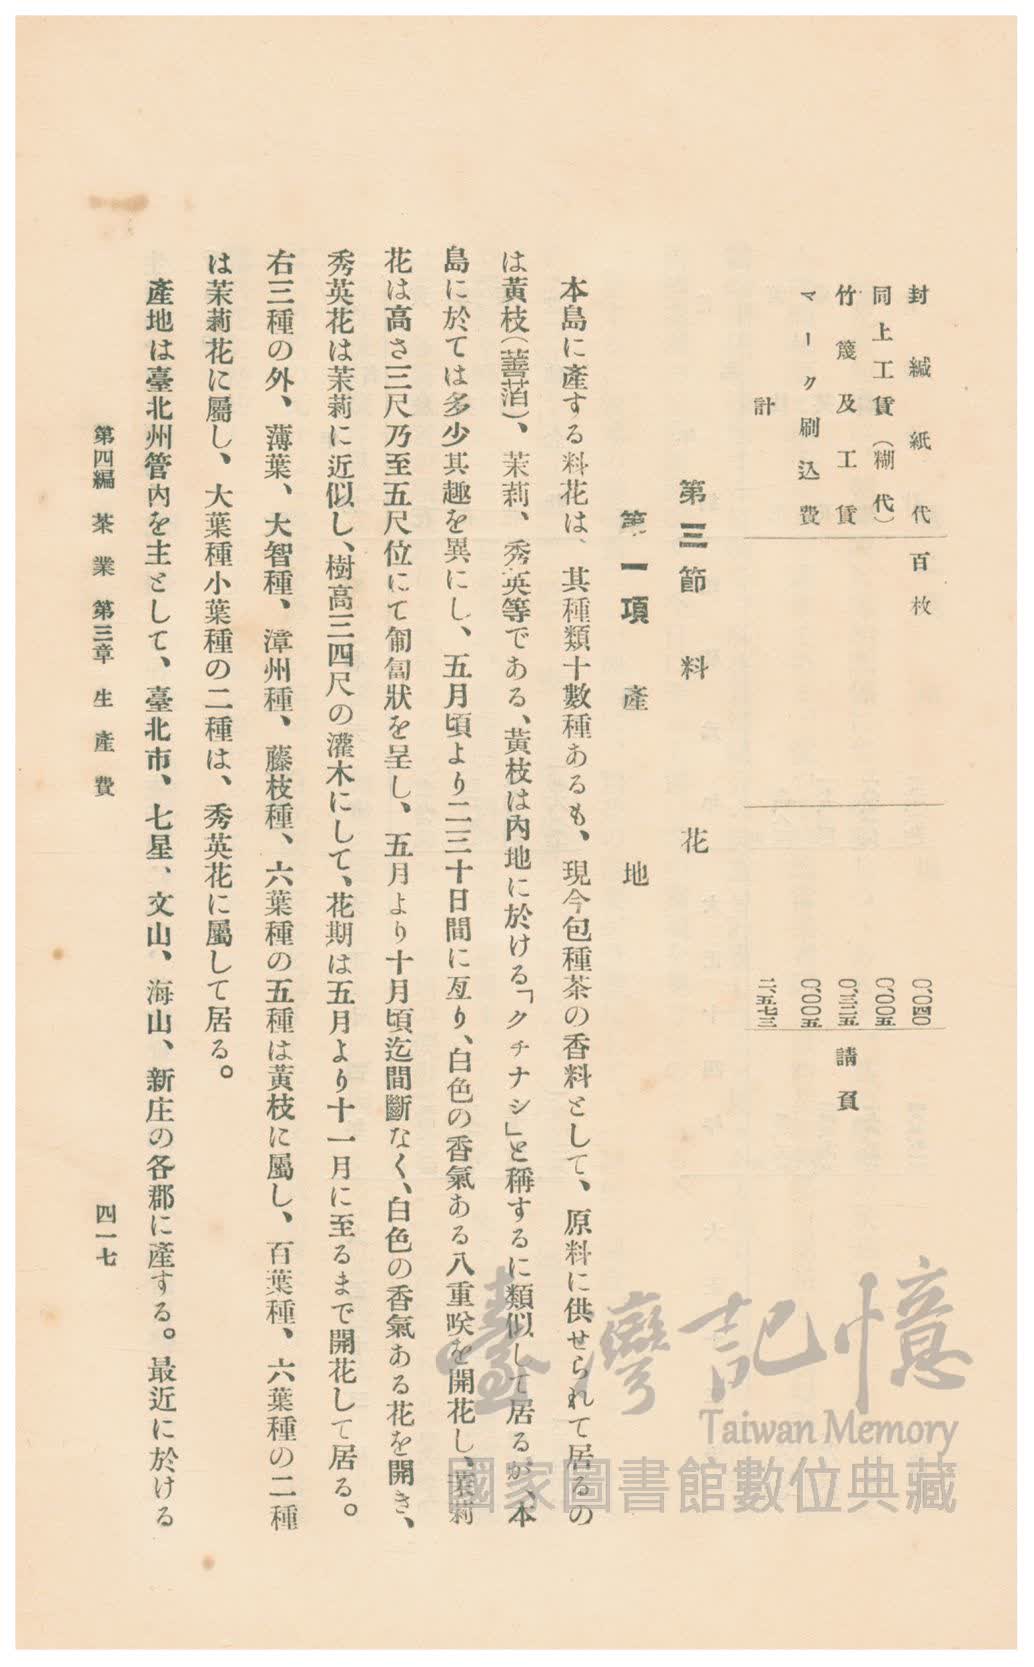 封緘紙代 百枚 〇、〇四〇
同上工賃（糊代） 〇、〇〇五
竹篾及工賃 〇、三二五 請負
マーク刷込費 〇、〇〇五
計 二、五七三
第三節 料花
第一項 產地
本島に產する料花は、其種類十數種あるも、現今包種茶の香料として、原料に供せられて居るの
は黃枝（薝蔔）、茉莉、秀英等である、黃枝は內地に於ける「クチナシ」と稱するに類似して居るが、本
島に於ては多少其趣を異にし、五月頃より二三十日間に亙り、白色の香氣ある八重咲を開花し、茉莉
花は高さ三尺乃至五尺位にて匍匐狀を呈し、五月より十月頃迄間斷なく、白色の香氣ある花を開き、
秀英花は茉莉に近似し、樹高三四尺の灌木にして、花期は五月より十一月に至るまで開花して居る。
右三種の外、薄葉、大智種、漳州種、藤枝種、六葉種の五種は黃枝に屬し、百葉種、六葉種の二種
は茉莉花に屬し、大葉種小葉種の二種は、秀英花に屬して居る。
產地は臺北州管內を主として、臺北市、七星、文山、海山、新庄の各郡に產する。最近に於ける
第四編 茶業 第三章 生產費
四一七
臺灣記憶
Taiwan Memory
國家圖書館數位典藏